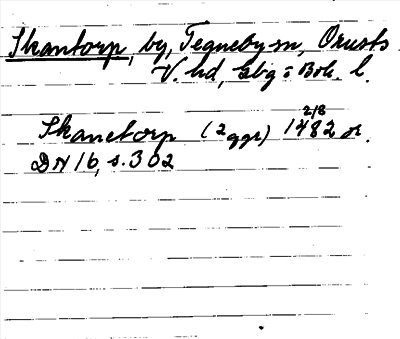 Skantorp, by, Tegneby sn, Orusts
V. hd, Gbg:s Boh. l.
2/8
Skanetorp (2 ggr) 1482 or.
DN 16, s. 302